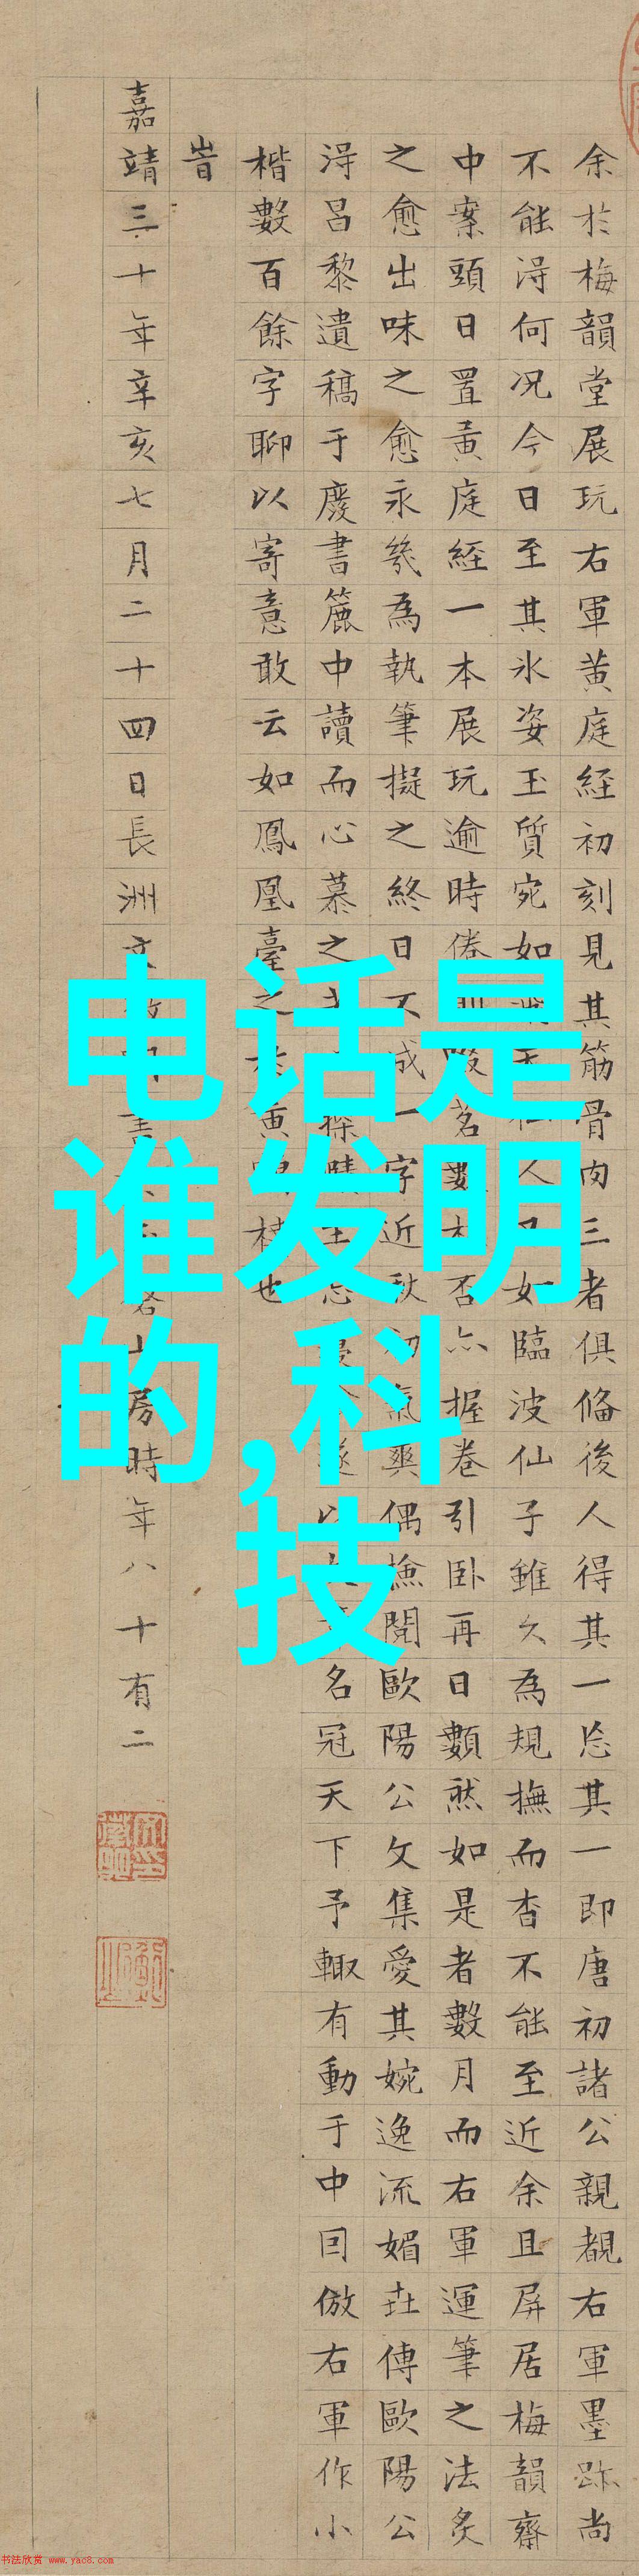 余於梅韻堂展玩右軍黄庭経初刻見其筋骨肉三者俱俻後人得其一忘其一即唐初諸公親覩右軍墨跡尚
不能淂何况今日至其氷姿玉質宛如人如臨波仙子雖久為規撫而杳不能至近余且屏居梅韻齋
中案頭日置黄庭経一本展玩逾時倦茗數否亦握卷引卧再日數然如是者數月而右軍運筆之法炙
之愈出味之愈永㡬為執筆擬之終日不成一字近秋初氣爽偶撿閲歐陽公文集愛其婉逸流媚世傳歐陽公
淂昌黎遺稿于廢書簏中讀而心慕之探以名冠天下予輙有動于中因倣右軍作小
楷數百餘字聊以寄意敢云如鳳凰臺之於黄也
旹
嘉靖三十年辛亥七月二十四日長洲文書山房時年八十有二
电话是
谁发明
的,科
技
书法欣赏 www.yac8.com